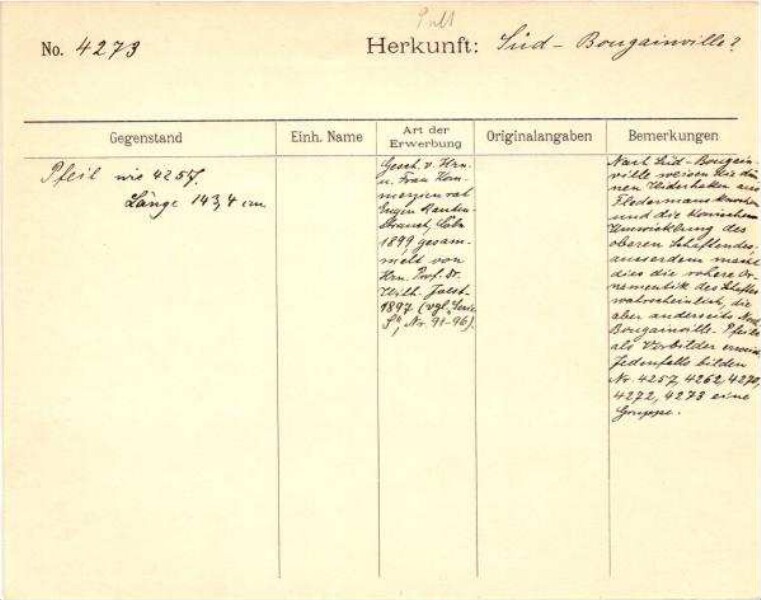 No. 4273
Herkunft: Süd - Bougainville?
Gegenstand
Einh. Name
Art der
Erwerbung
Originalangaben
Bemerkungen
Pfeil wie 4257.
Länge 143,4 cm
Gesch. v. Hrn.
u. Frau Kom-
merzienrat
Eugen Rauten-
strauch, Cöln
1899 gesam-
melt von
Hrn. Prof. Dr.
Wilh. Joest
1897 (vgl. "Serie
S", Nr. 91-96).
Nach Süd-Bougain-
ville weisen die dün-
nen Widerhaken aus
Fledermausknochen
und die konischen
Umwicklung des
oberen Schaftendes,
ausserdem macht
dies die rohere Or-
namentik des Schaftes
wahrscheinlich, die
aber anderseits Nord
Bougainville-Pfeile
als Vorbilder
Jedenfalls bilden
Nr. 4257, 4262, 4270,
4272, 4273 eine
Gruppe.